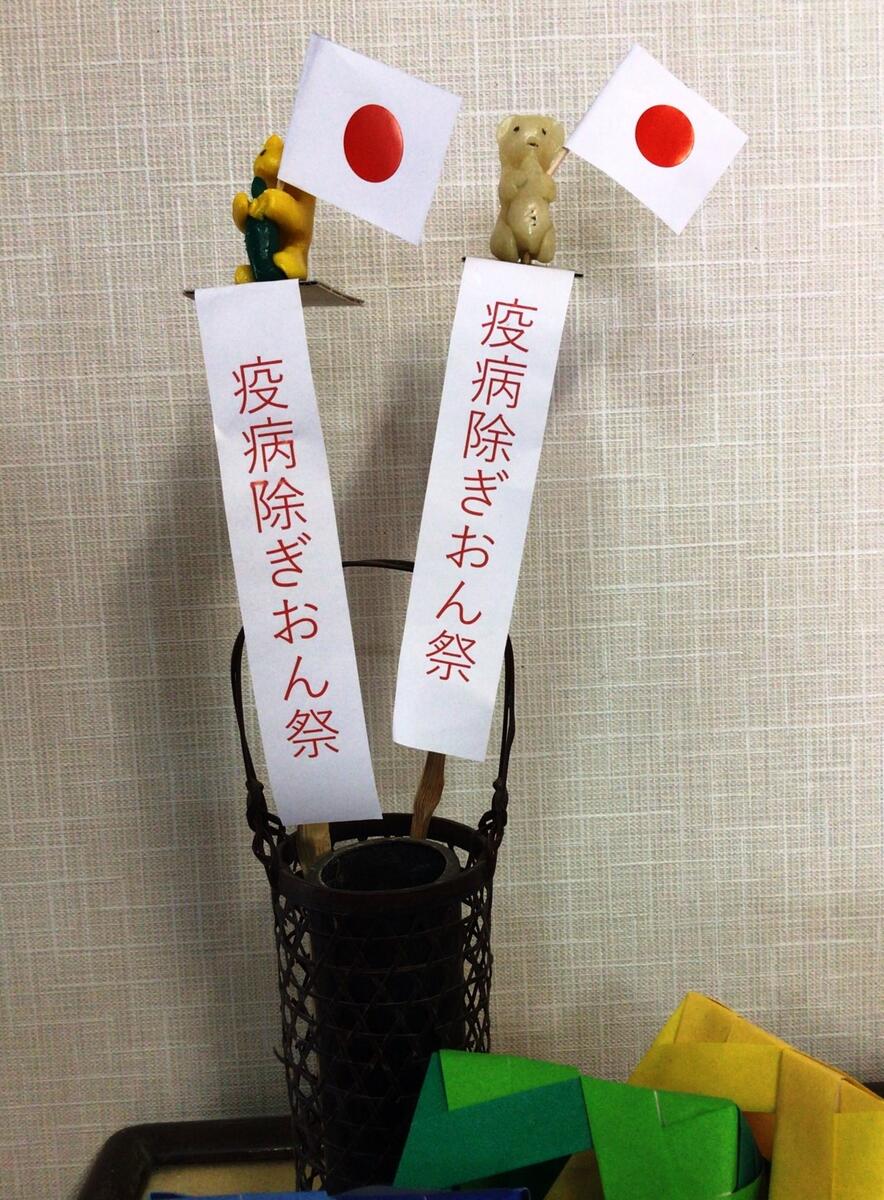 疫病除ぎおん祭
疫病除ぎおん祭